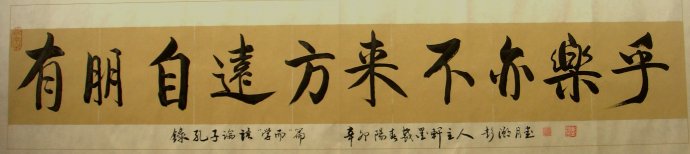 有朋自遠方来不亦樂乎
錄孔子論語"学而"篇 辛卯陽春 墨軒主人 彭 月